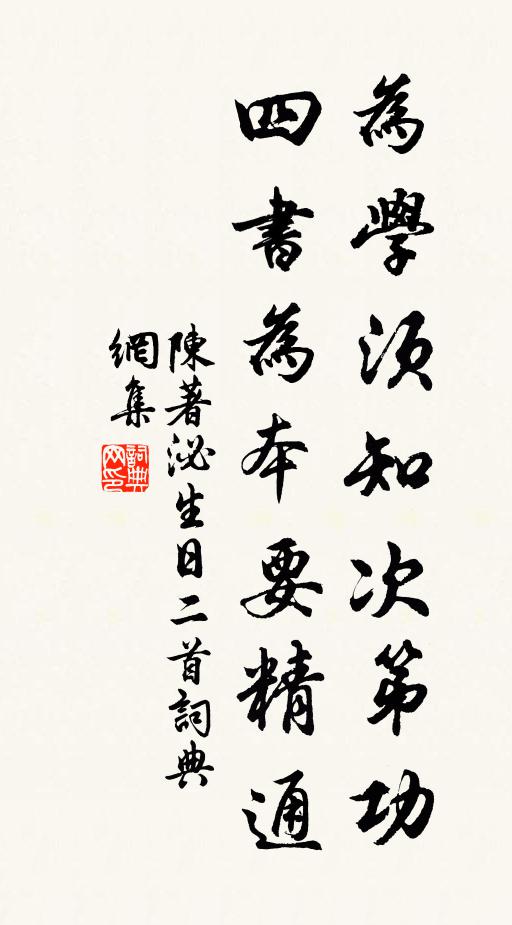 為學須知次第功
四書為本要精通
陳著泌生日二首詞典
網集
詞典網印